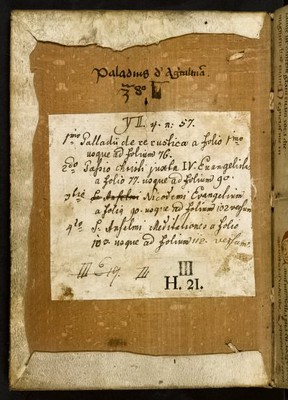 Paladius d' Agricultura
Y II. 4. n: 57.
1mo Palladij de re rustica a folio 1mo
usque ad folium 76.
2do Passio Christi juxta IV. Evangelistas
a folio 77. usque ad folium 90.
3tio S. Anselmi Nicodemi Evangelium
a folio 90. usque ad folium 102 versum
4to S. Anselmi Meditationes a folio
102. usque ad folium 112. versum.
III
H. 21.